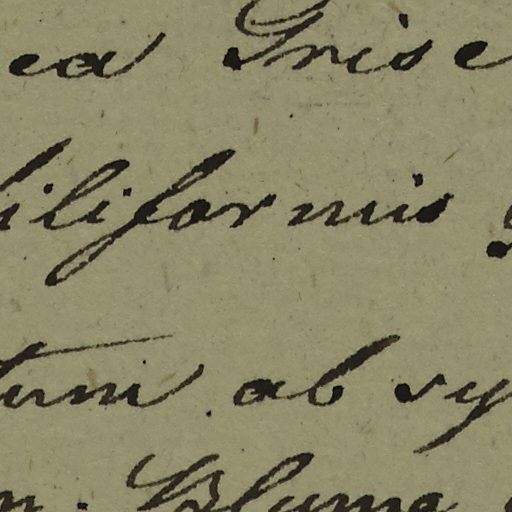 ea Grise
filiformis
tum ab sy
n. Blume